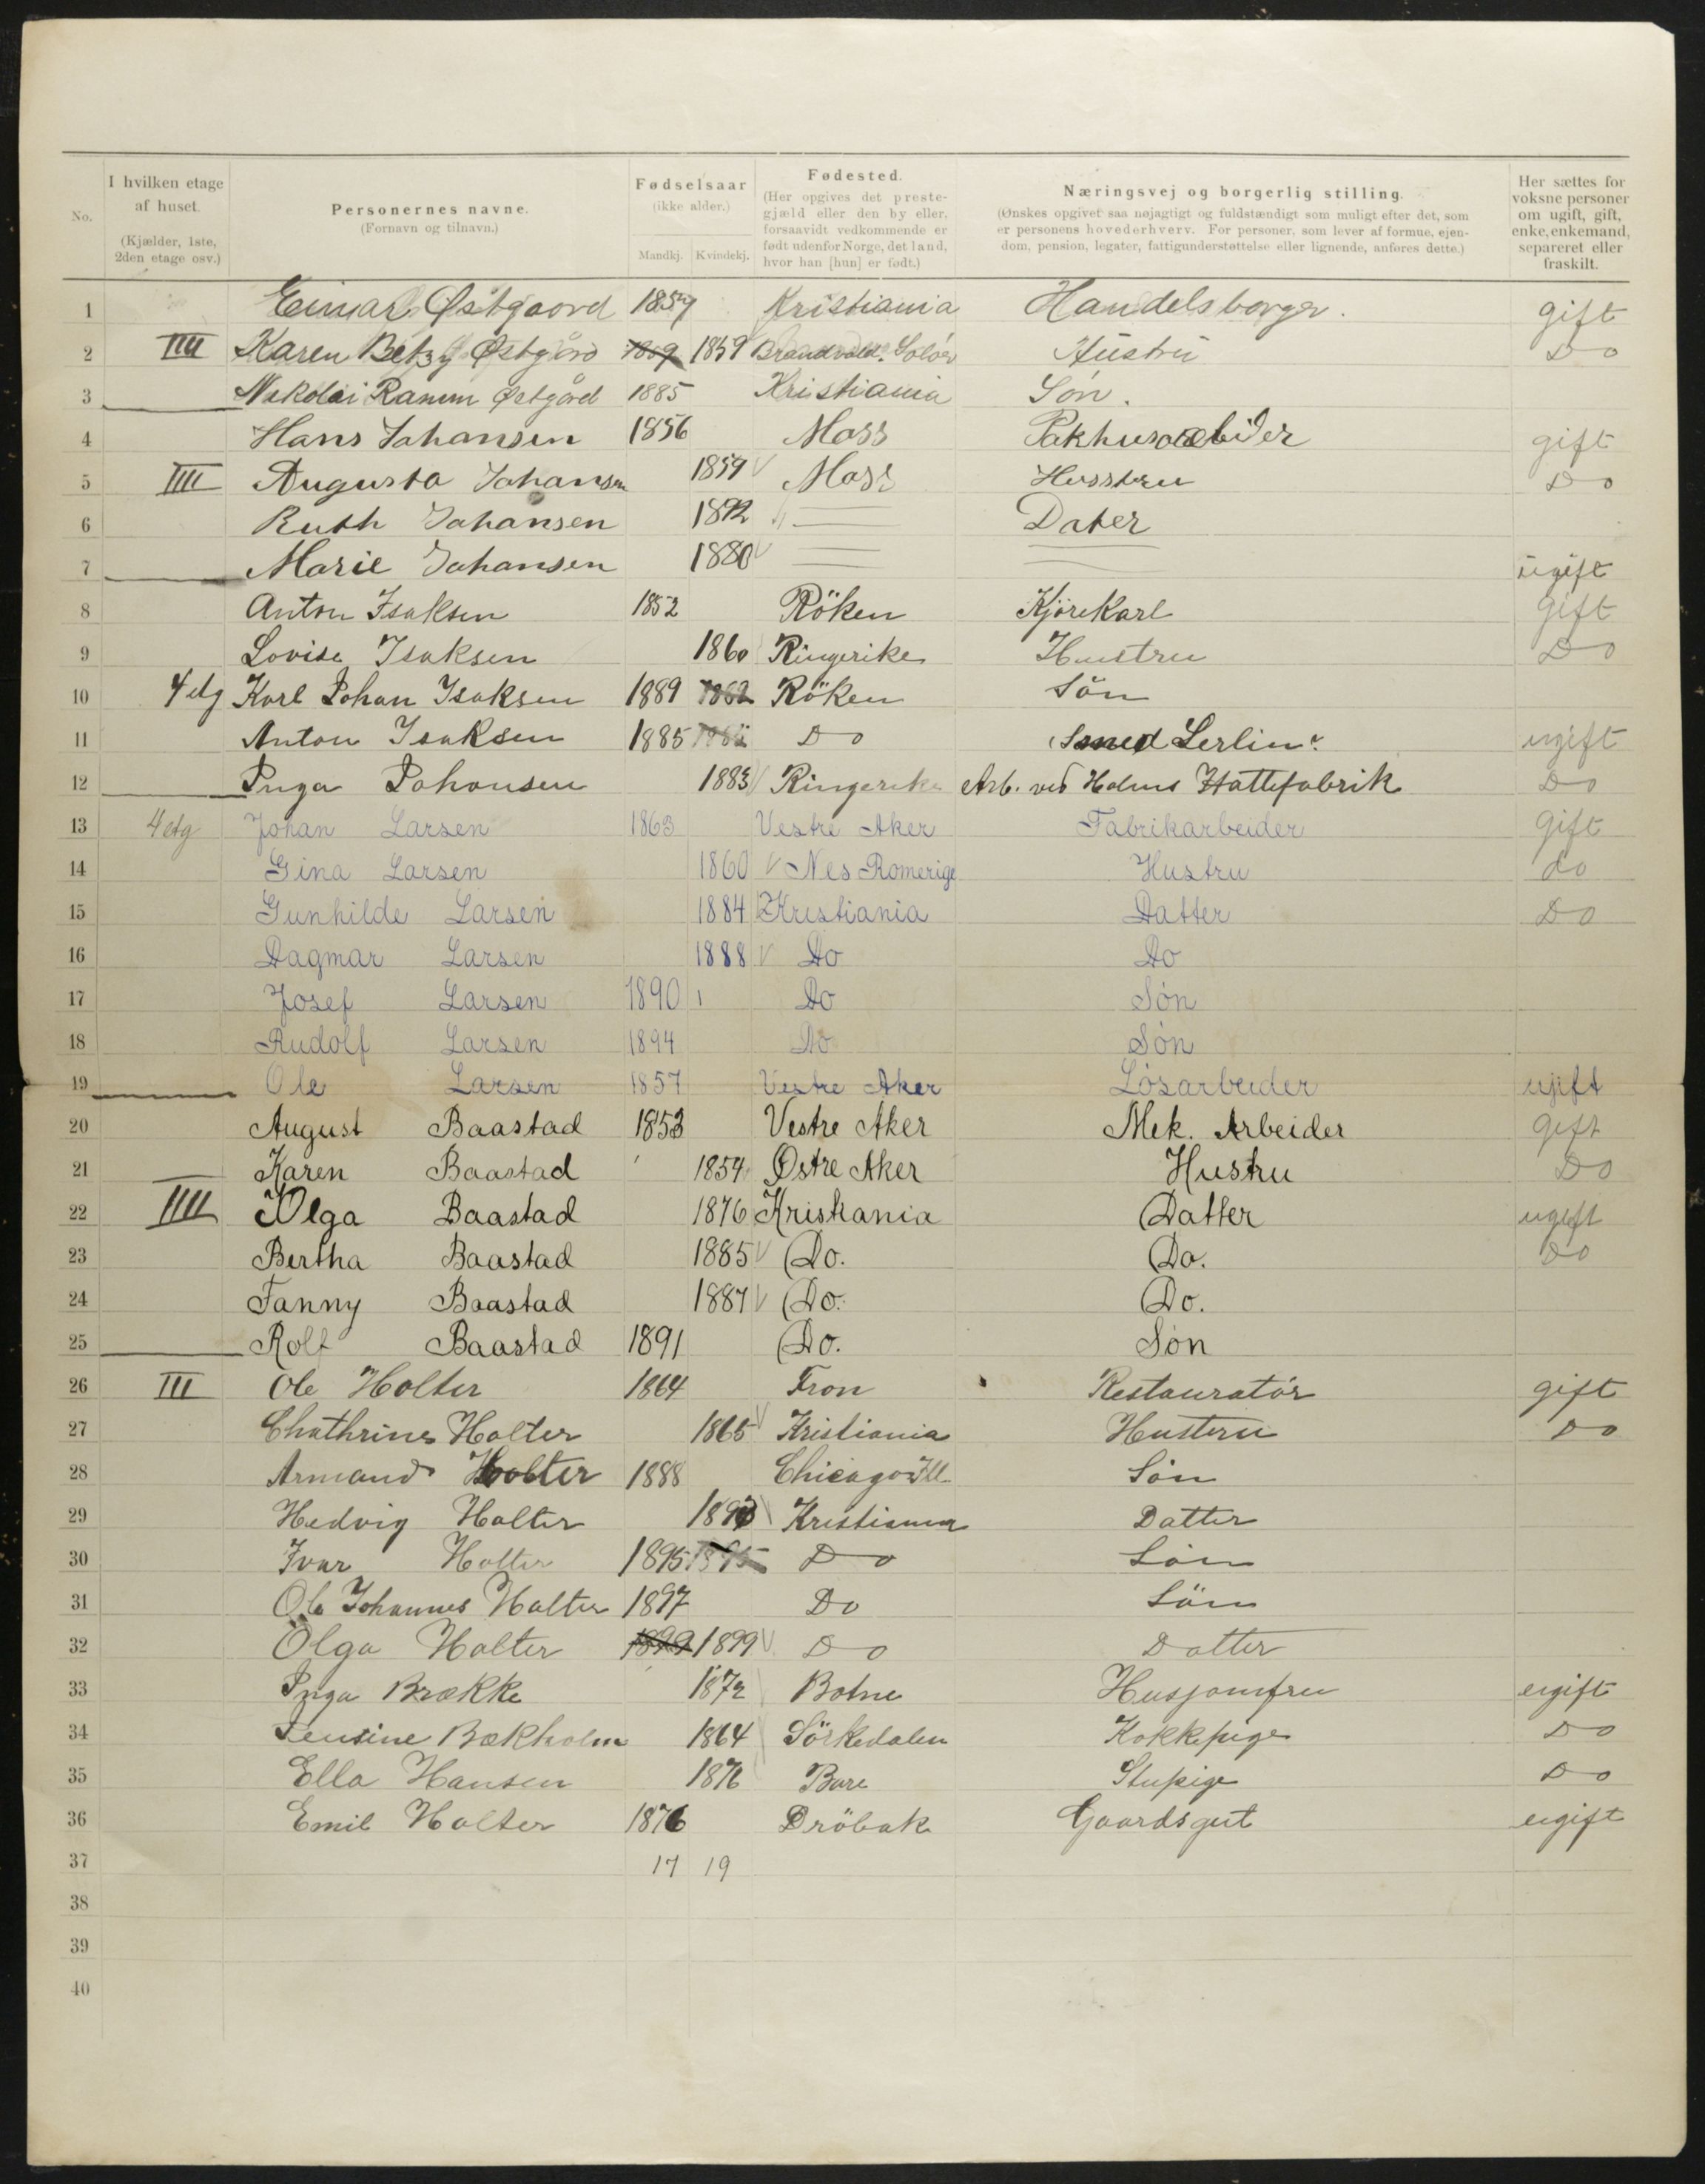 No. | I hvilken etage af huset. (Kjælder, 1ste, 2den etage osv.) | Personernes navne. (Fornavn og tilnavn.) | Fødselsaar (ikke alder.) Mandkj. Kvindekj. | Fødested. (Her opgives det prestegjæld eller den by eller, forsaavidt vedkommende er født udenfor Norge, det land, hvor han [hun] er født.) | Næringsvej og borgerlig stilling. (Ønskes opgivet saa nøjagtigt og fuldstændigt som muligt efter det, som er personens hovederhverv. For personer, som lever af formue, ejendom, pension, legater, fattigunderstøttelse eller lignende, anføres dette.) | Her sættes for voksne personer om ugift, gift, enke, enkemand, separeret eller fraskilt.
1 Einar Østgaard 1859 Kristiania Handelsborger. gift
2 IIII Karen Betzy Østgård 1859 Brandvold. Solør Hustru Do
3 Nikolai Ramm Østgård 1885 Kristiania Søn.
4 Hans Johansen 1856 Moss Pakhusarbeider gift
5 IIII Augusta Johansen 1859 Moss Husstru Do
6 Ruth Johansen 1892 " Dater
7 Marie Johansen 1880 ugift
8 Anton Isaksen 1852 Röken Kjørekarl gift
9 Lovise Isaksen 1860 Ringerike Hustru Do
10 4 etg Karl Johan Isaksen 1889 1882 Röken Sön
11 Anton Isaksen 1885 Do Smed Lerlin. ugift
12 Inga Johansen 1883 Ringerike Arb. ved Holms Hattefabrik Do
13 4 etg Johan Larsen 1863 Vestre Aker Fabrikarbeider Gift
14 Gina Larsen 1860 Nes Romerige Hustru do
15 Gunhilde Larsen 1884 Kristiania Datter Do
16 Dagmar Larsen 1888 Do Do
17 Josef Larsen 1890 Do Søn
18 Rudolf Larsen 1894 Do Søn
19 Ole Larsen 1857 Vestre Aker Løsarbeider ugift
20 August Baastad 1853 Vestre Aker Mek. Arbeider Gift
21 Karen Baastad 1854 Østre Aker Hustru Do
22 IIII Olga Baastad 1876 Kristiania Datter ugift
23 Bertha Baastad 1885 Do. Do. Do
24 Fanny Baastad 1887 Do. Do.
25 Rolf Baastad 1891 Do. Søn
26 III Ole Holter 1864 Fron Restauratør gift
27 Chathrine Holter 1865 Kristiania Hustru Do
28 Armand Holter 1888 Chicago Ill Søn
29 Hedvig Holter 1893 Kristiania Datter
30 Ivar Holter 1895 1895 Do Søn
31 Ole Johannes Holter 1897 Do Sön
32 Olga Holter 1899 1899 Do Datter
33 Inga Brække 1872 Botne Husjomfru ugift
34 Bækholm 1864 Sörkedalen Kokkepige Do
35 Ella Hansen 1876 Bare Stupige Do
36 Emil Holter 1876 Dröbak Gaardsgut ugift
37 17 19
38
39
40